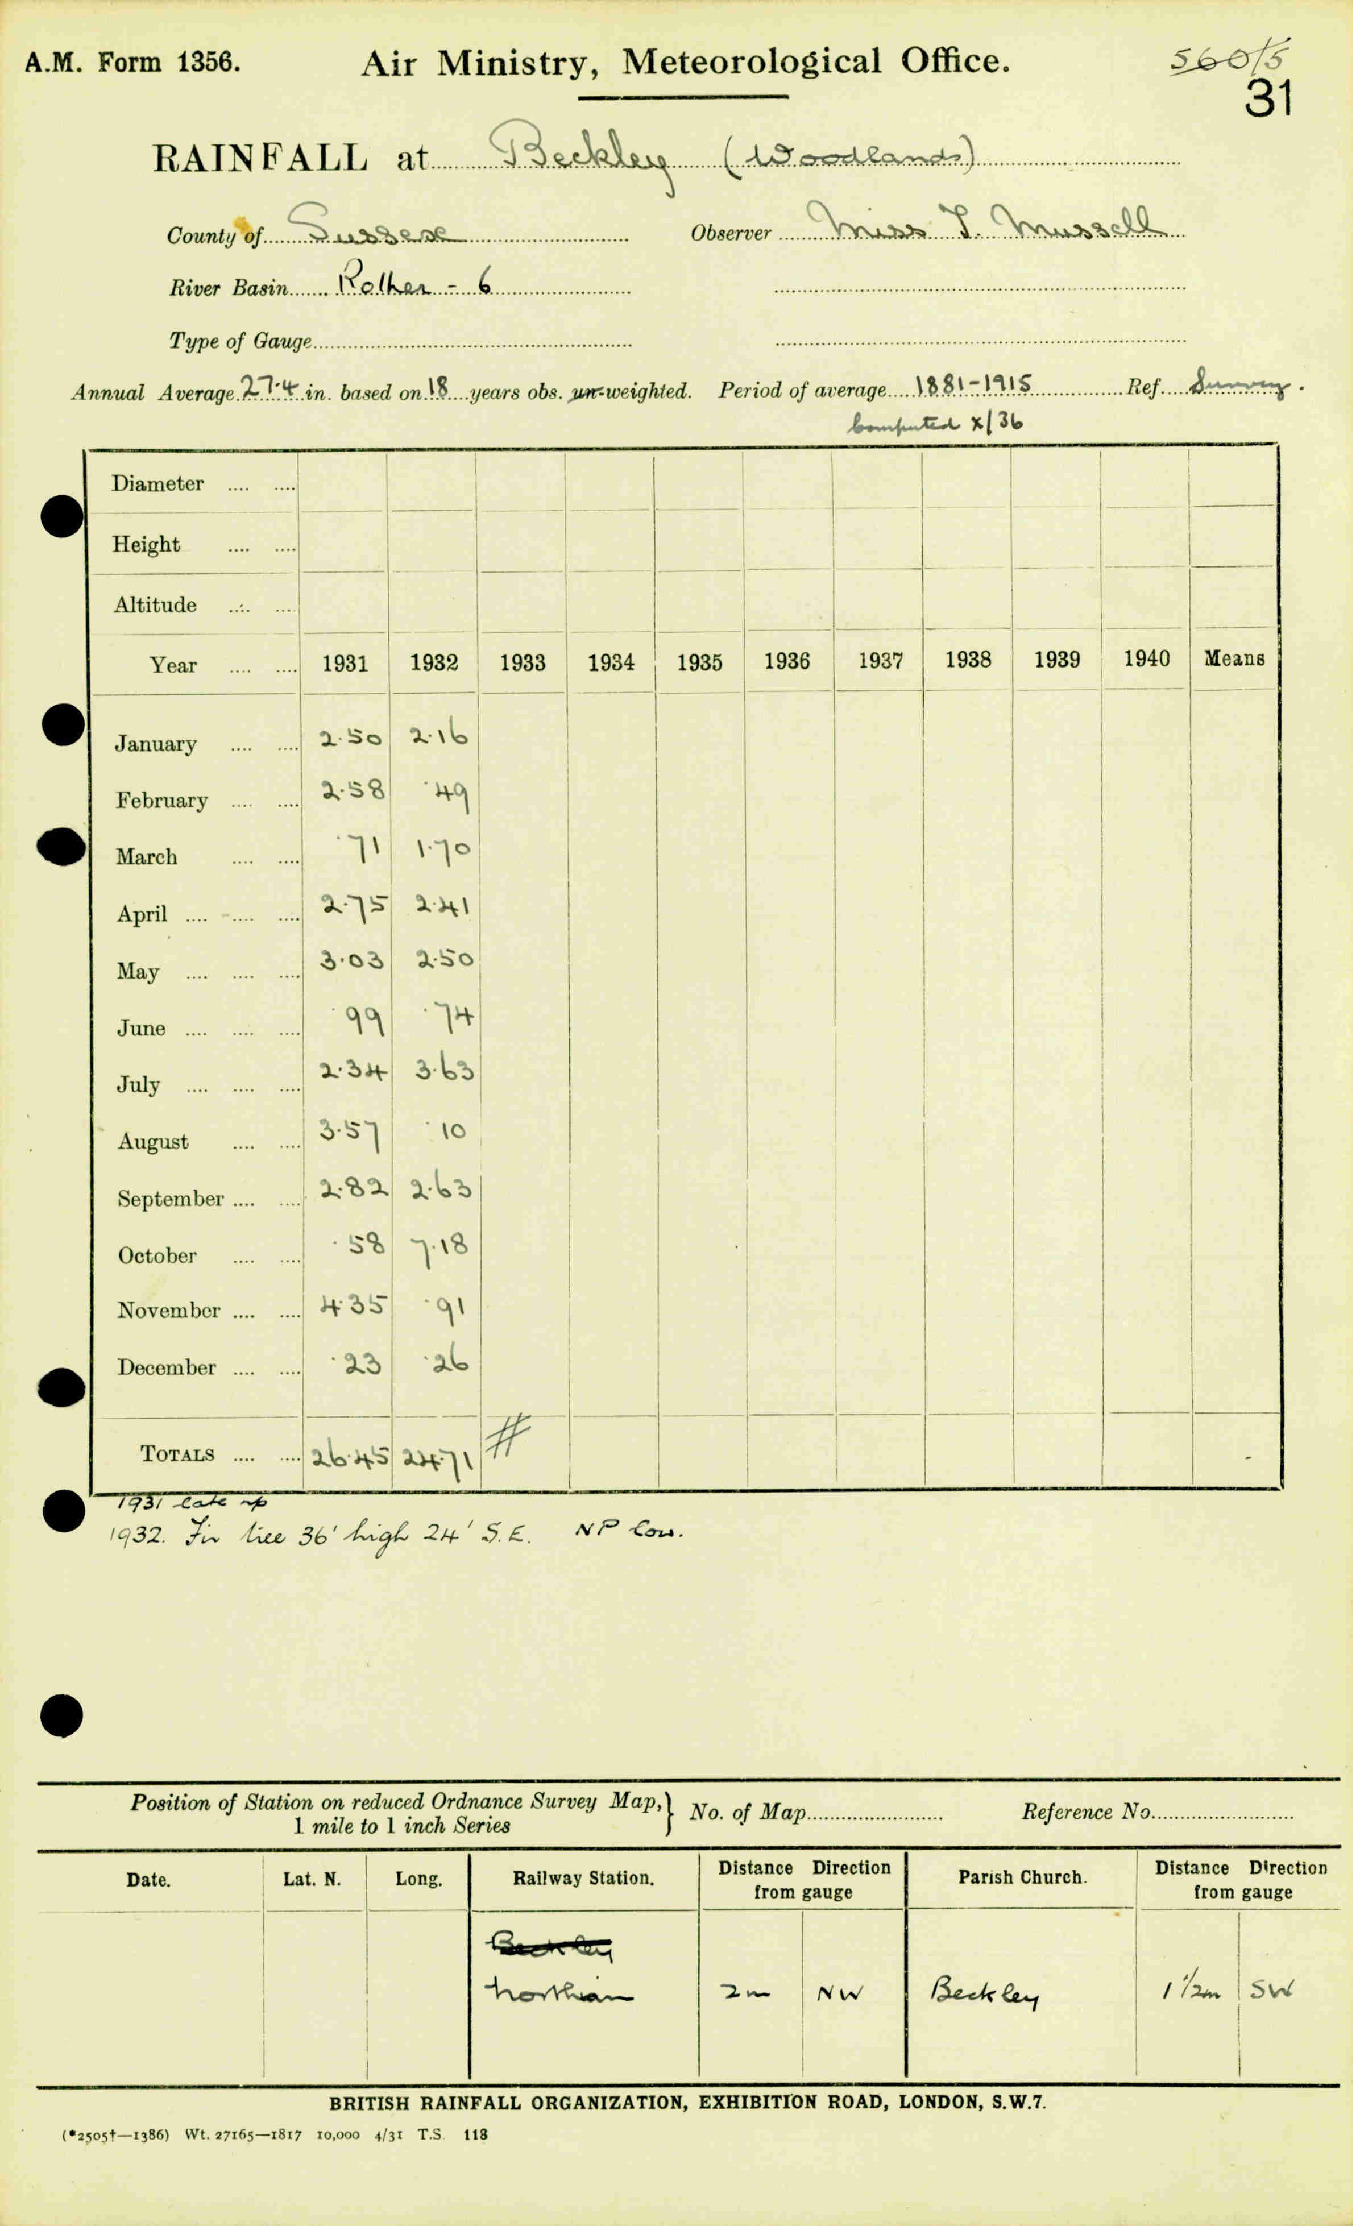 A.M. Form 1356. Air Ministry, Meteorological Office. 560/5
31
RAINFALL at Beckley (Woodlands)
County of Sussex Observer Miss I. Mussell
River Basin Rother - 6
Type of Gauge
Annual Average 27.4 in. based on 18 years obs. un-weighted. Period of average 1881-1915 Ref. Survey.
Computed x/36
Diameter
Height
Altitude
Year 1931 1932 1933 1934 1935 1936 1937 1938 1939 1940 Means
January 2.50 2.16
February 2.58 .49
March .71 1.70
April 2.75 2.41
May 3.03 2.50
June .99 .74
July 2.34 3.63
August 3.57 .10
September 2.82 2.63
October .58 7.18
November 4.35 .91
December .23 .26
TOTALS 26.45 24.71 #
1931 late
1932. Fir tree 36' high 24' S.E. NP low.
Position of Station on reduced Ordnance Survey Map, } No. of Map Reference No.
1 mile to 1 inch Series
Date. Lat. N. Long. Railway Station. Distance Direction from gauge Parish Church. Distance Direction from gauge
Beckley
Northiam 2m NW Beckley 1 1/2m SW
BRITISH RAINFALL ORGANIZATION, EXHIBITION ROAD, LONDON, S.W.7.
(*2505†—1386) Wt. 27165—1817 10,000 4/31 T.S. 118